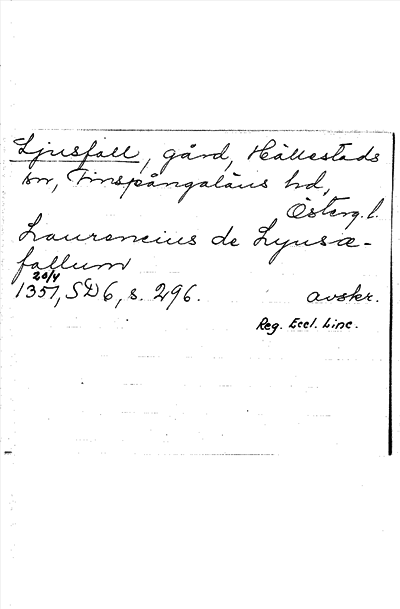 Ljusfall, gård, Hällestads
sn, Finspångaläns hd,
Österg. l.
Laurencius de Lyusæ-
fallum
20/4
1351, SD 6, s. 296. avskr.
Reg. Eccl. Linc.